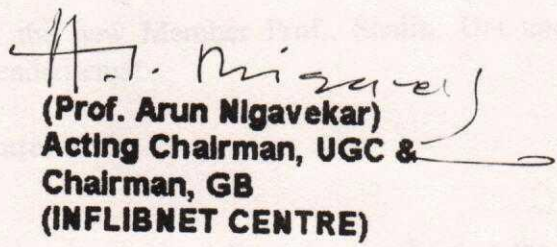 (Prof. Arun Nigavekar)
Acting Chairman, UGC &
Chairman, GB
(INFLIBNET CENTRE)